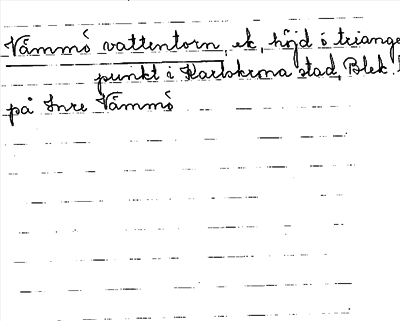 Vämmö vattentorn, ek, höjd o triange
punkt i Karlskrona stad, Blek.
på Inre Vämmö